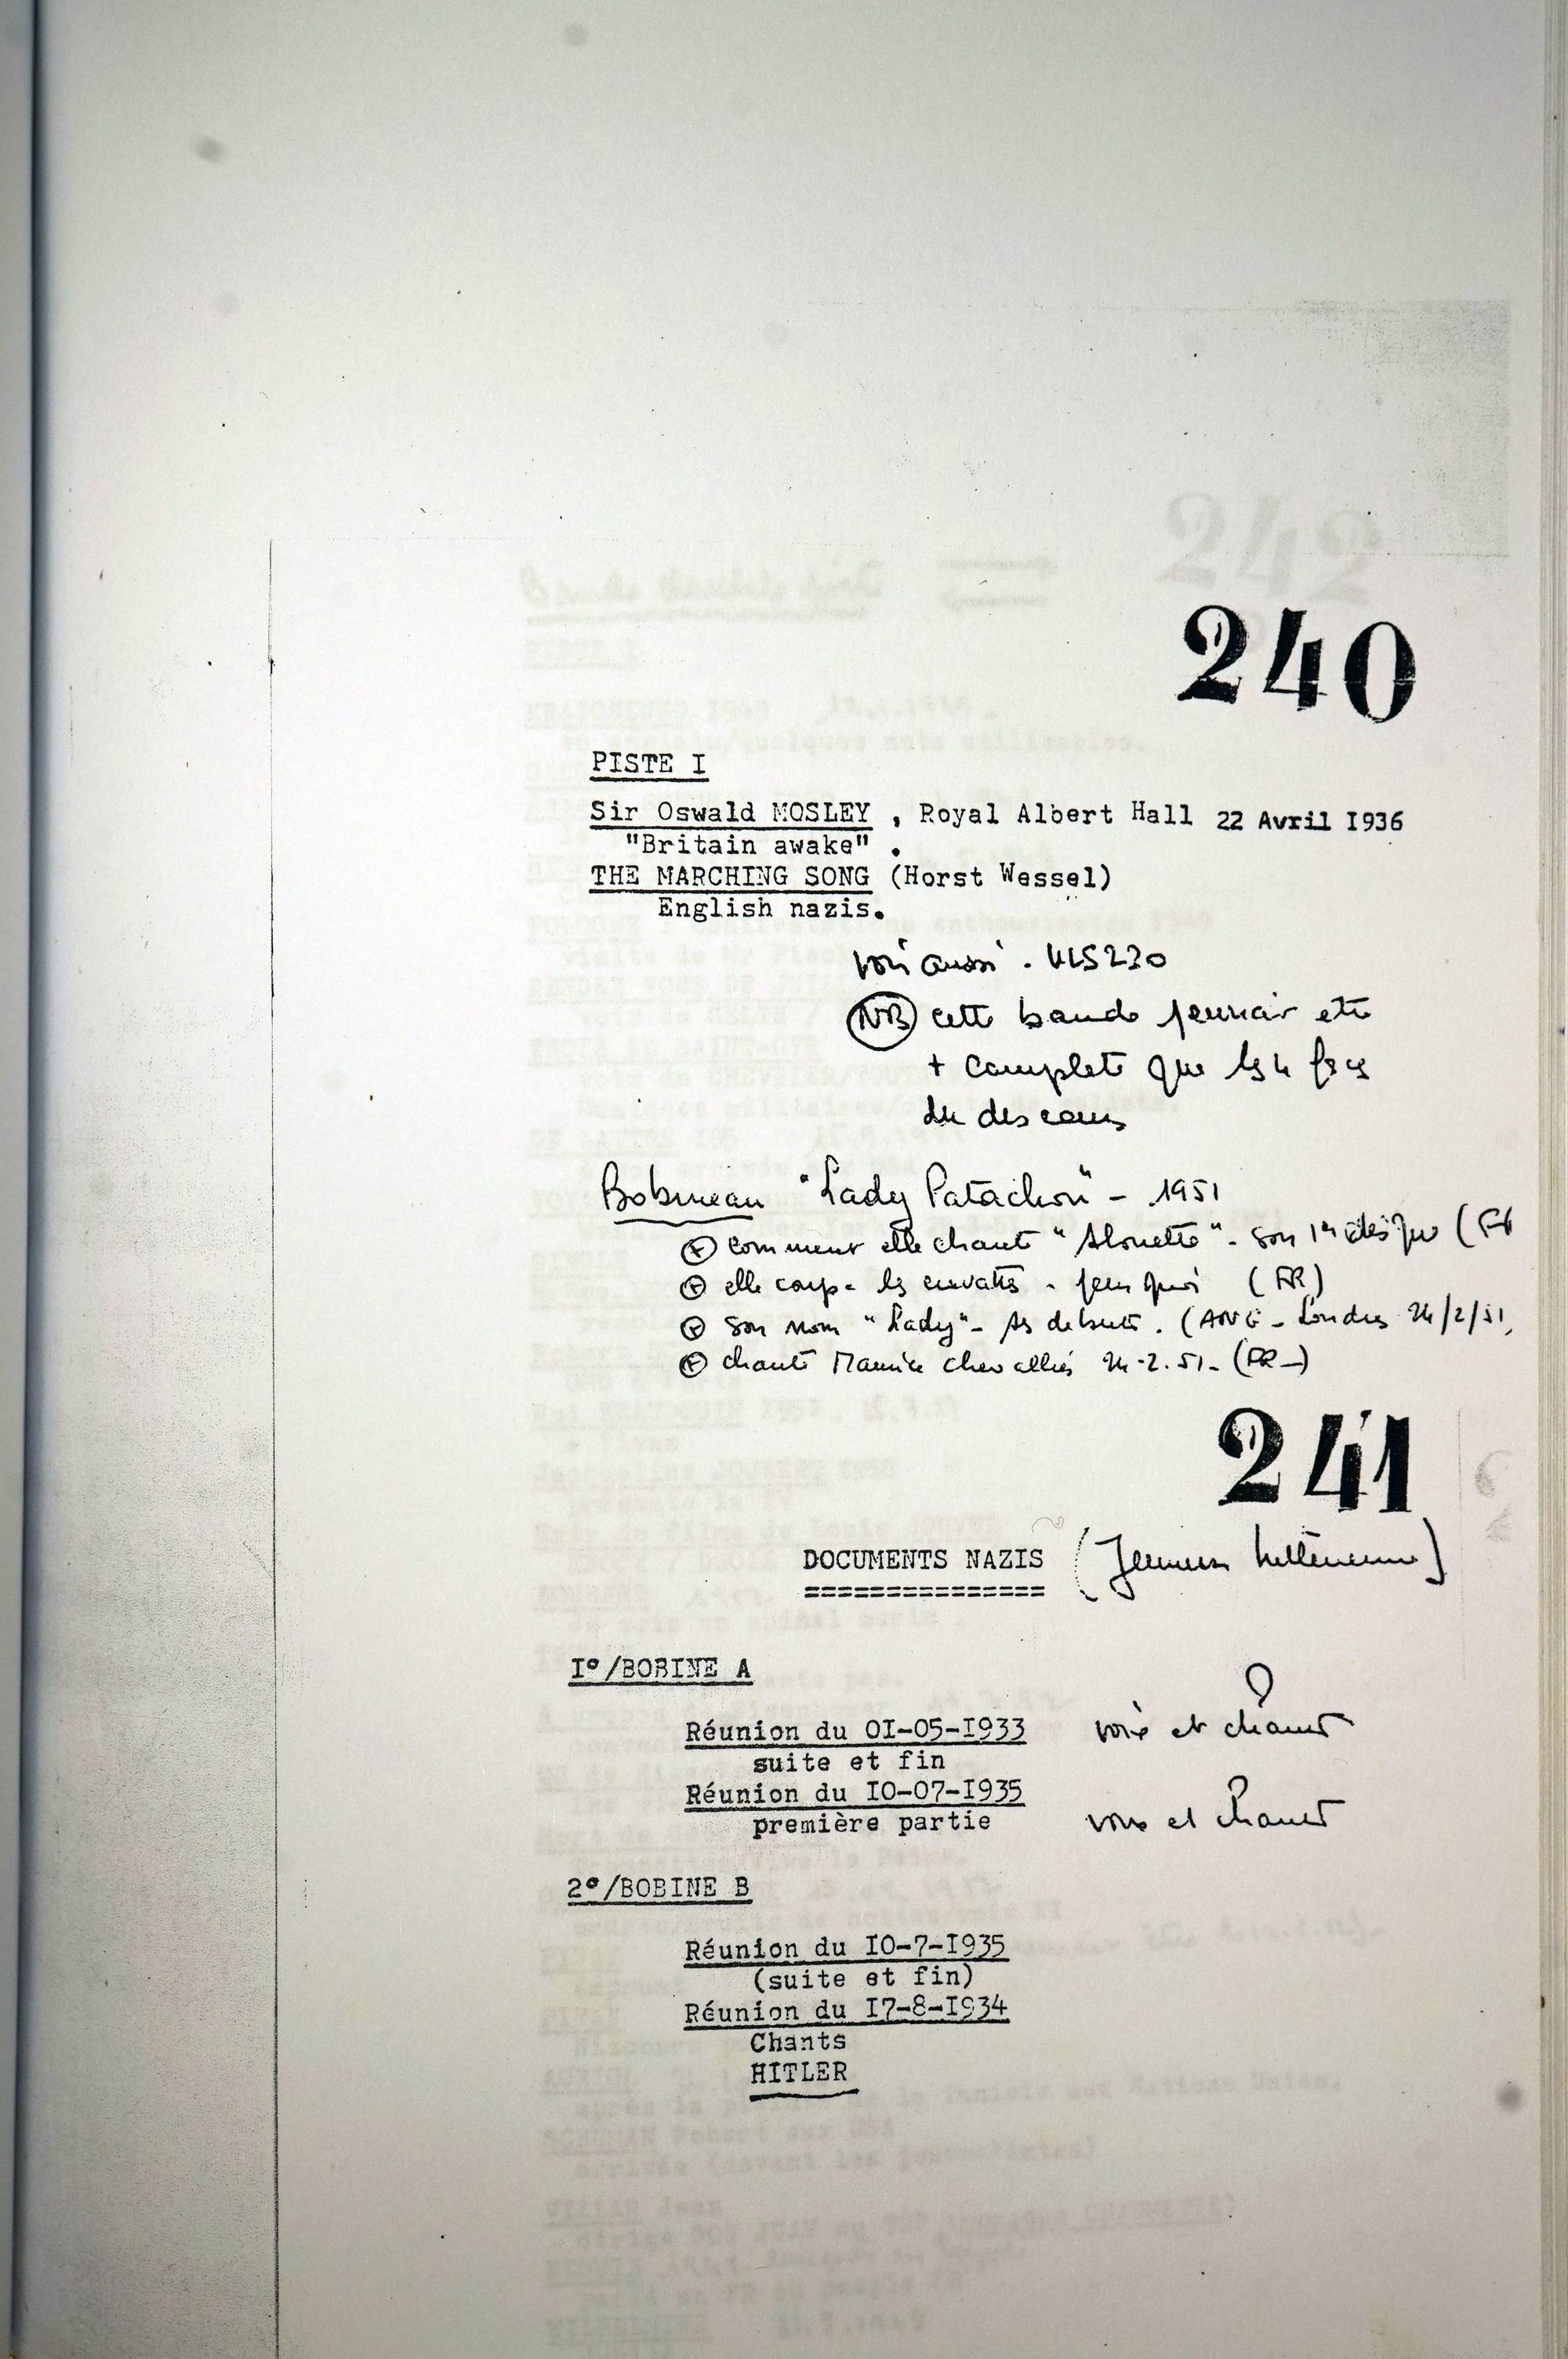 240
PISTE I
Sir Oswald MOSLEY , Royal Albert Hall 22 Avril I936
"Britain awake" .
THE MARCHING SONG (Horst Wessel)
English nazis.
voir aussi .
NB cette bande pourrait etre
+ complete que les 4 faces
de disques
Bobineau "Lady Patachou" - 1951
comment elle chante "Alouette" - son 1er disque
elle coupe les cravates - pourquoi (FR)
son nom "Lady" - ses debuts . (ANG - Londres 24/2/51
chante Maurice chevallier 24-2.51- (FR-)
241
DOCUMENTS NAZIS (Jeunesse hitlerienne)
===============
I°/BOBINE A
Réunion du OI-05-I933 voix et chant
suite et fin
Réunion du IO-07-I935
première partie voix et chant
2°/BOBINE B
Réunion du IO-7-I935
(suite et fin)
Réunion du I7-8-I934
Chants
HITLER